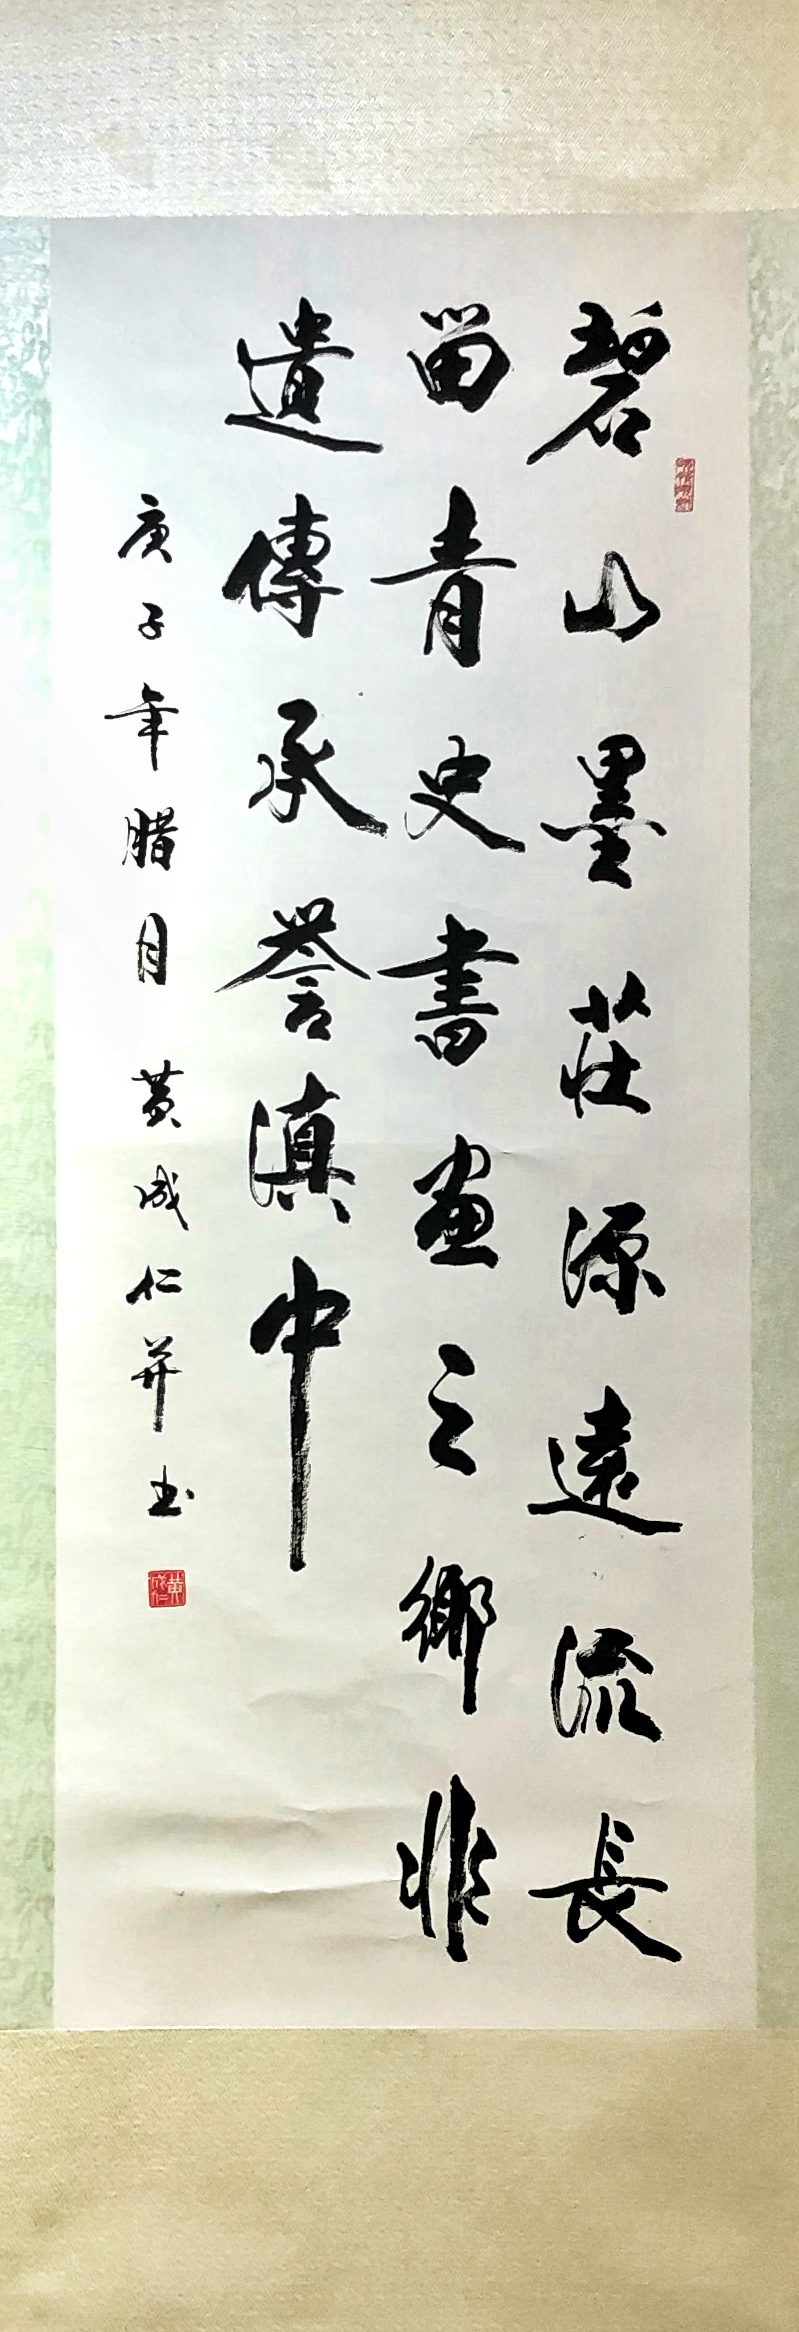 碧山墨莊源遠流長
留青史書畫之鄉非
遺傳承譽滇中
庚子年腊月 黄成仁并书
黄成仁